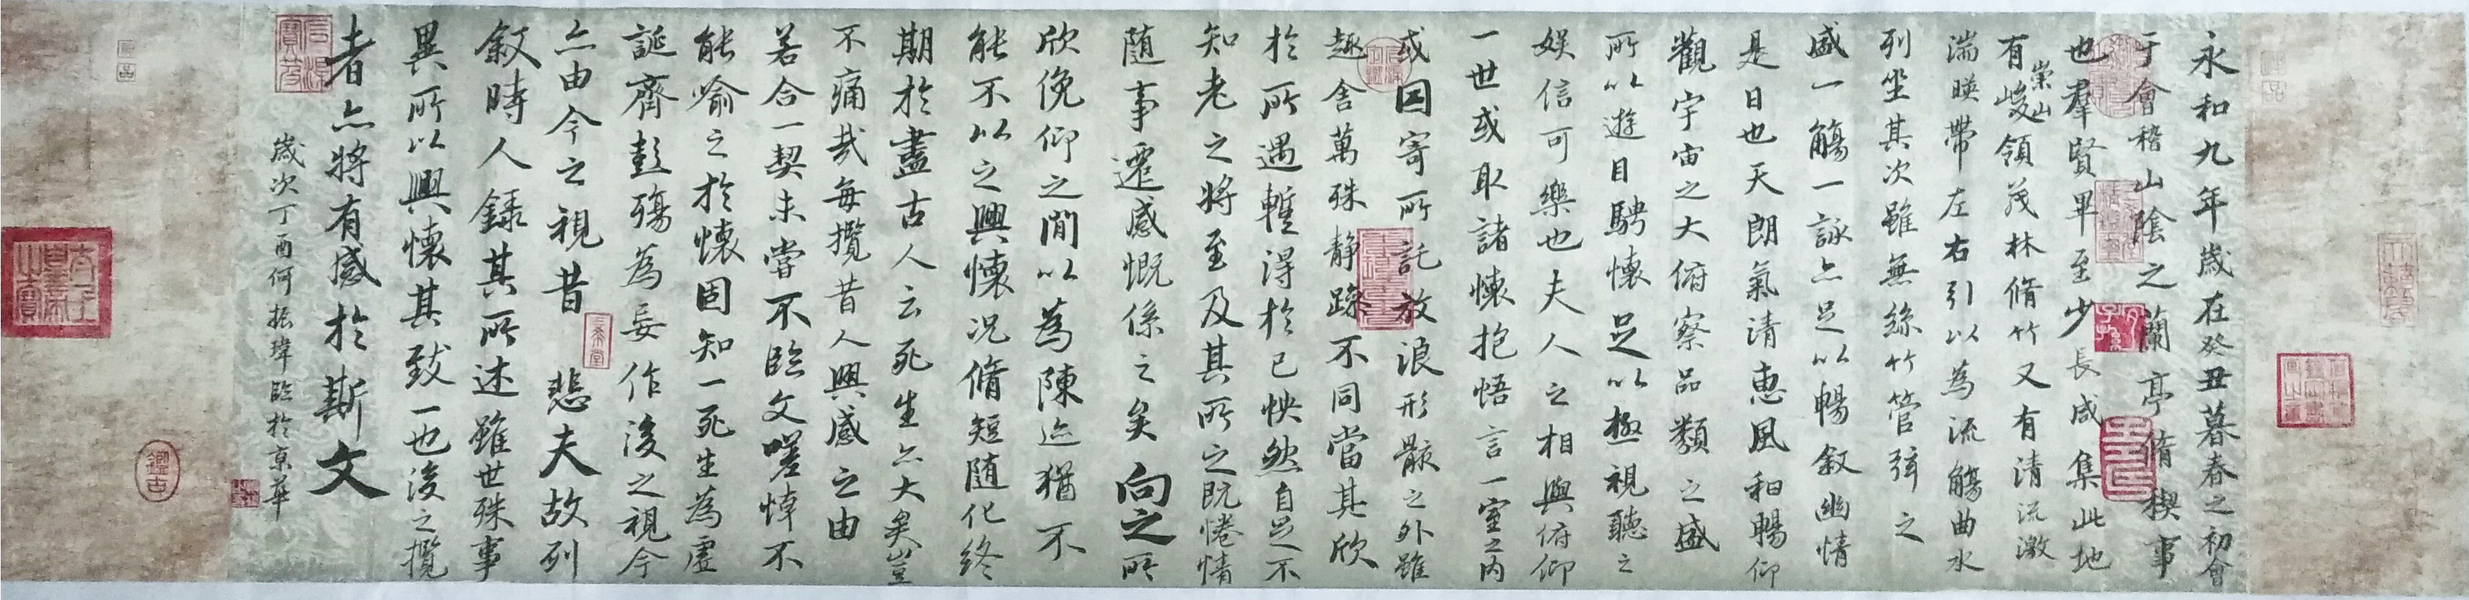 永和九年歲在癸丑暮春之初會
于會稽山陰之蘭亭脩稧事
也羣賢畢至少長咸集此地
有崇山峻領茂林脩竹又有清流激
湍暎帶左右引以為流觴曲水
列坐其次雖無絲竹管弦之
盛一觴一詠亦足以暢敘幽情
是日也天朗氣清惠風和暢仰
觀宇宙之大俯察品類之盛
所以遊目騁懷足以極視聽之
娛信可樂也夫人之相與俯仰
一世或取諸懷抱悟言一室之內
或因寄所託放浪形骸之外雖
趣舍萬殊靜躁不同當其欣
於所遇暫得於己怏然自足不
知老之將至及其所之既惓情
随事遷感慨係之矣向之所
欣俛仰之閒以為陳迹猶不
能不以之興懷况脩短随化終
期於盡古人云死生亦大矣豈
不痛哉每攬昔人興感之由
若合一契未嘗不臨文嗟悼不
能喻之於懷固知一死生為虛
誕齊彭殤為妄作後之視今
亦由今之視昔悲夫故列
敘時人錄其所述雖世殊事
異所以興懷其致一也後之攬
者亦將有感於斯文
歲次丁酉何振瑋臨於京華
鑑古